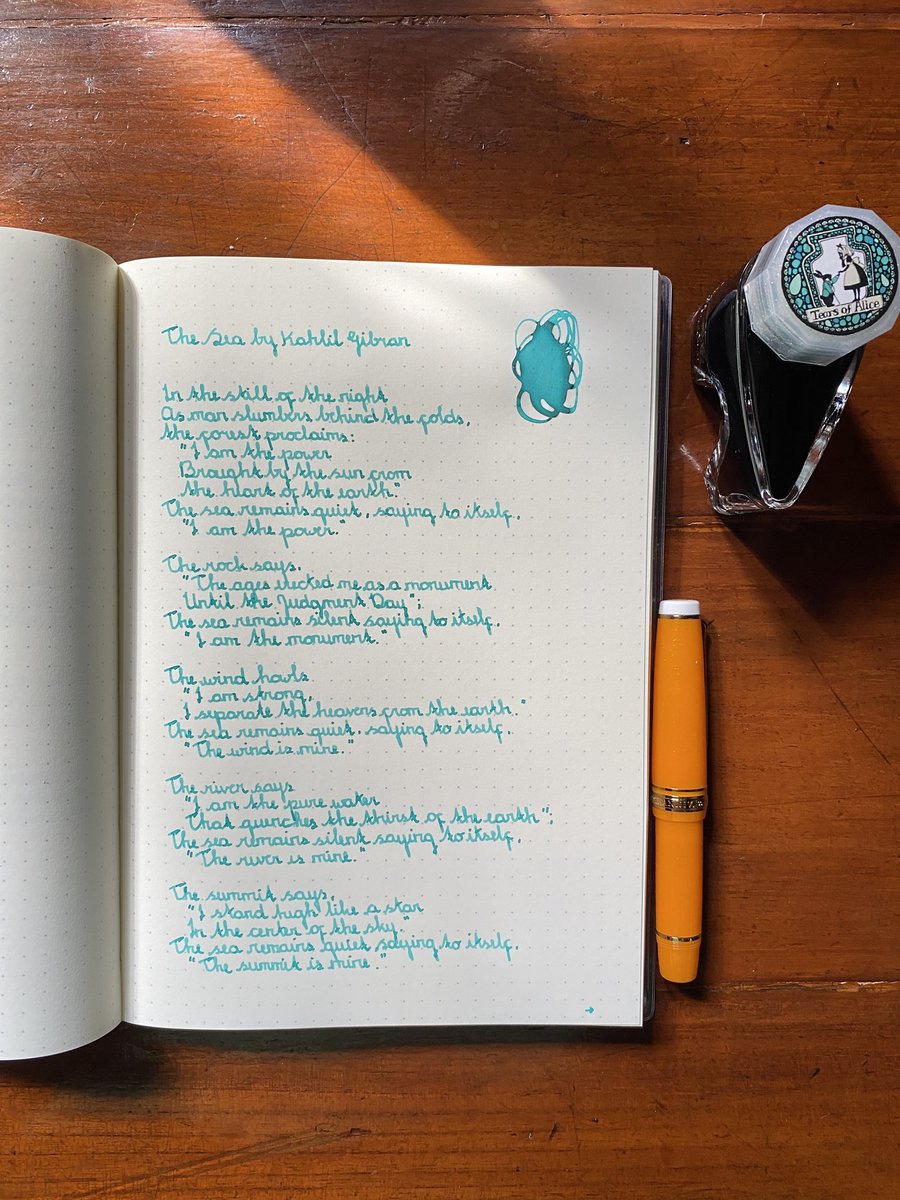 The Sea by Kahlil Gibran
In the still of the night
As man slumbers behind the folds,
the forest proclaims:
"I am the power
Brought by the sun from
the heart of the earth."
The sea remains quiet, saying to itself,
"I am the power."
The rock says,
"The ages erected me as a monument
Until the Judgment Day";
The sea remains silent saying to itself,
"I am the monument."
The wind howls
"I am strong,
I separate the heavens from the earth."
The sea remains quiet, saying to itself,
"The wind is mine."
The river says
"I am the pure water
That quenches the thirst of the earth";
The sea remains silent saying to itself,
"The river is mine."
The summit says,
"I stand high like a star
In the center of the sky."
The sea remains quiet saying to itself,
"The summit is mine."
→
Tears of Alice